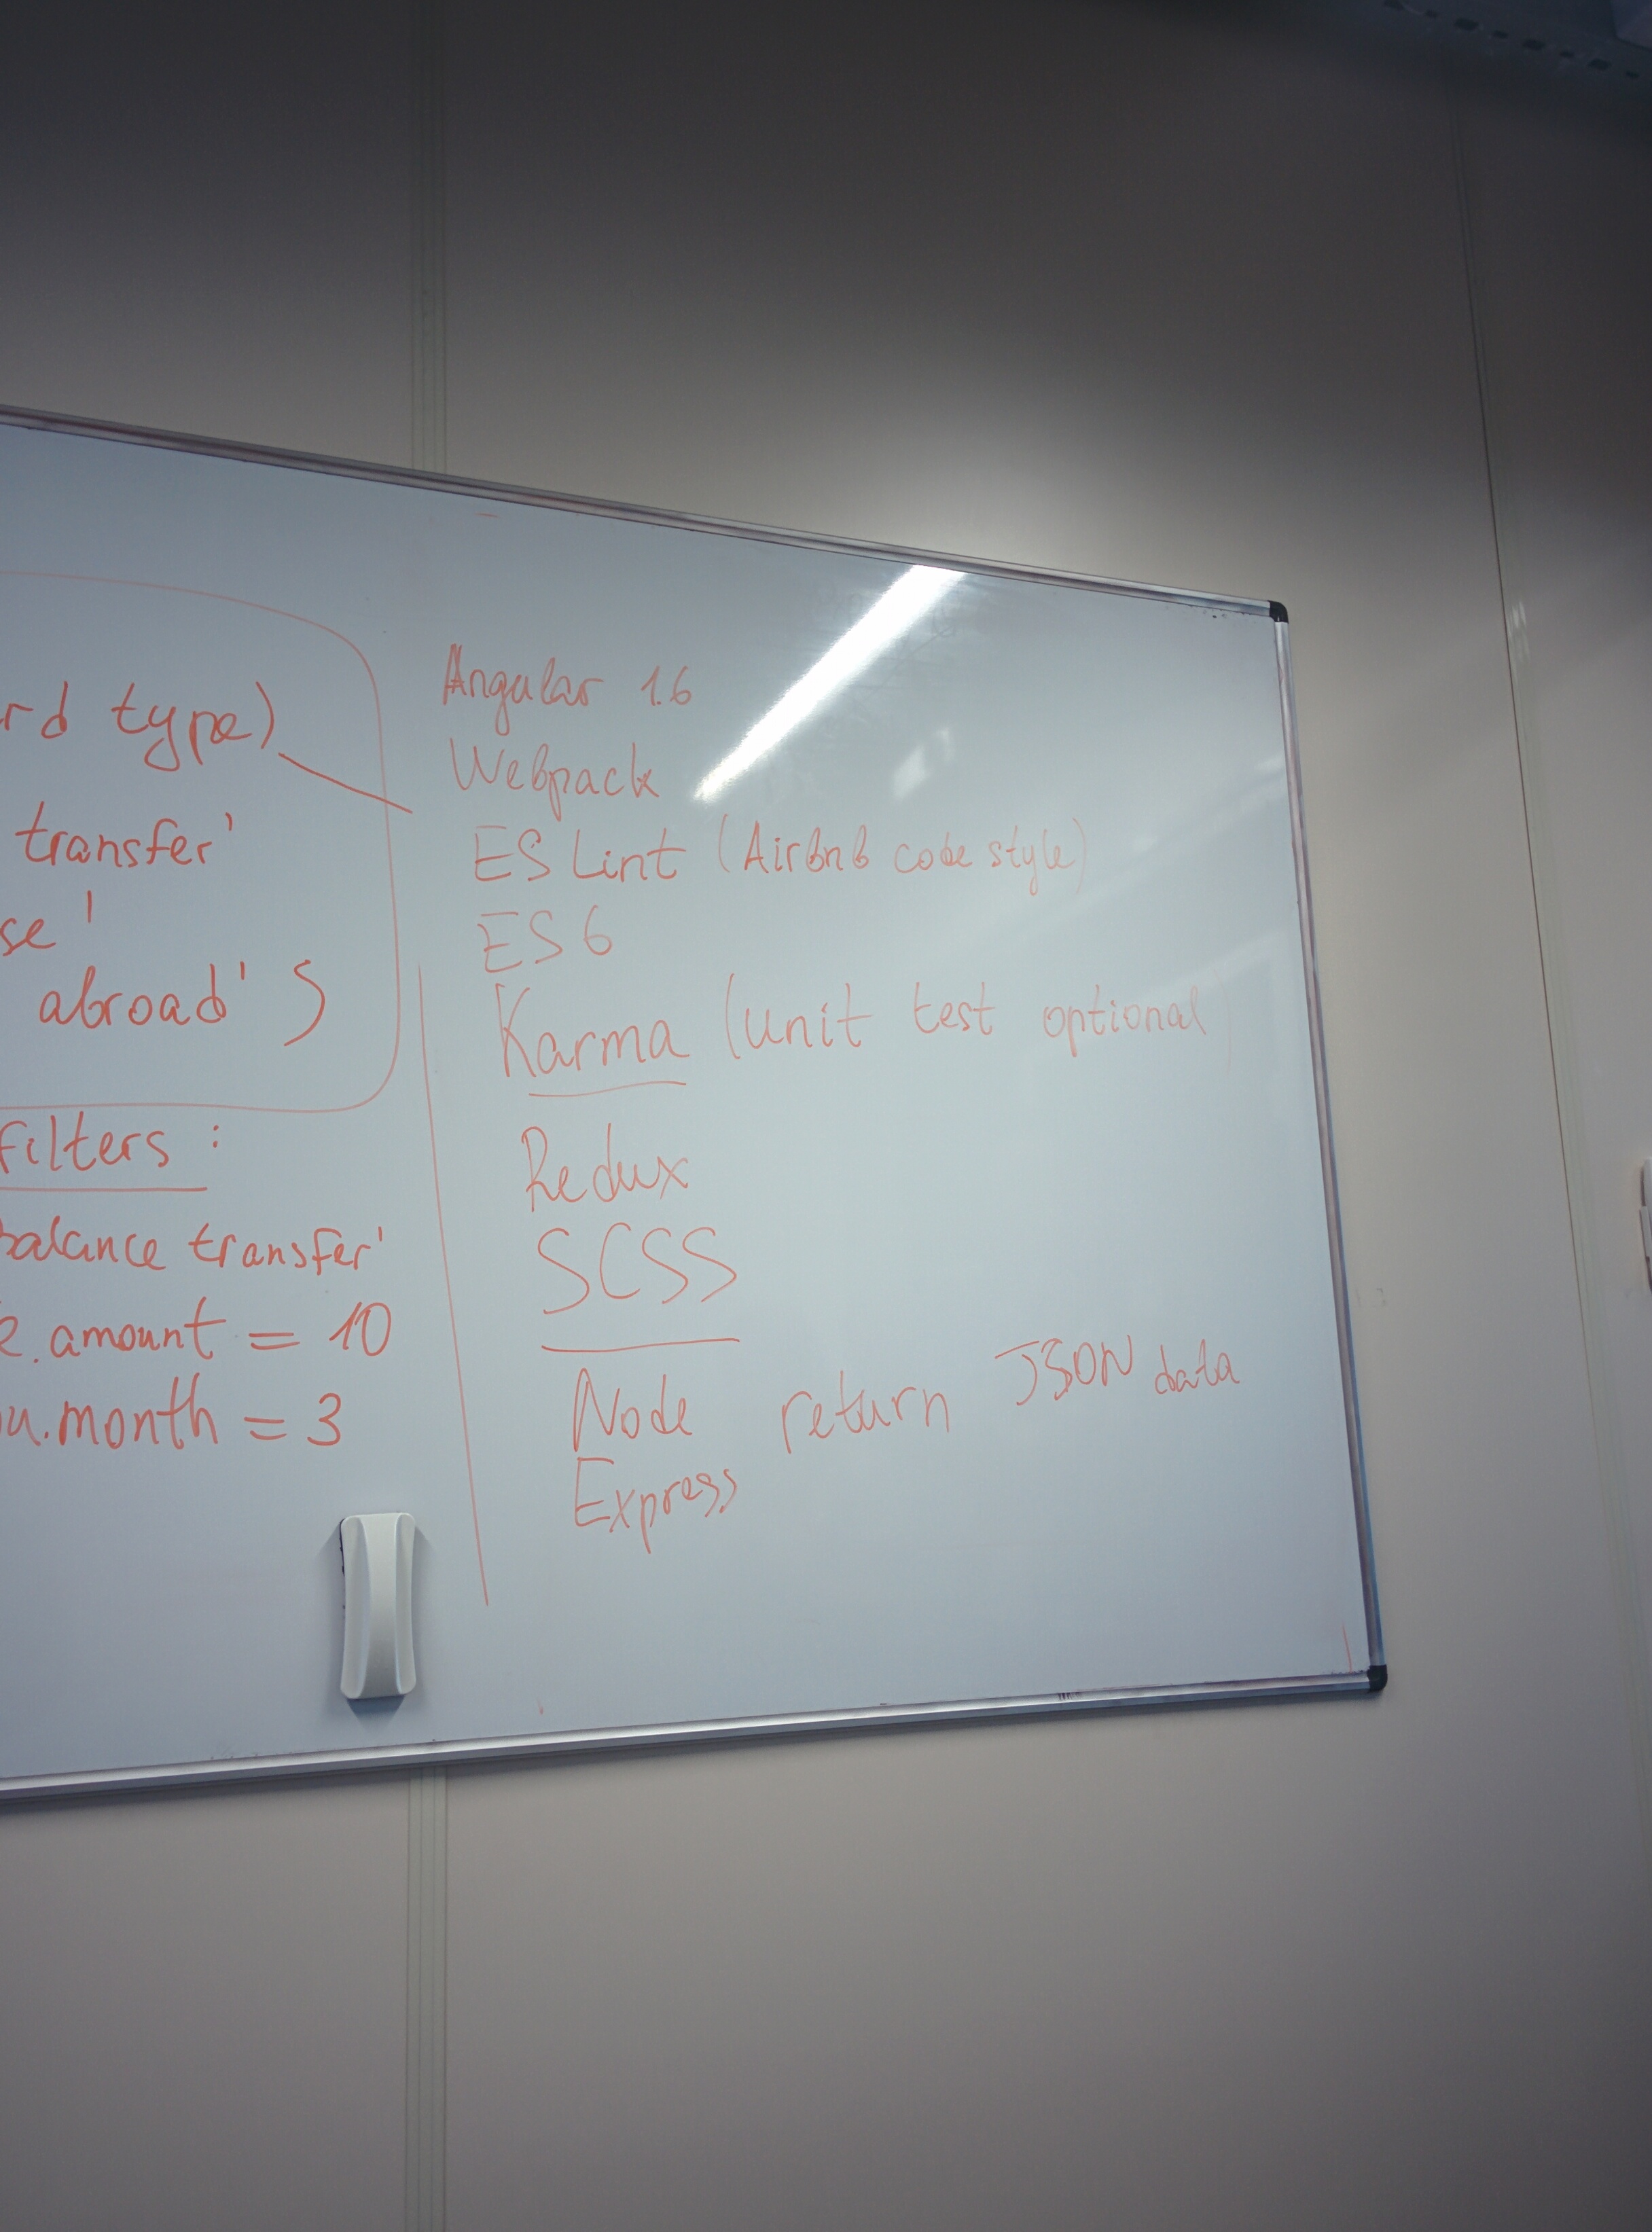 rd type)
transfer'
se'
abroad'
filters :
balance transfer'
.amount = 10
.month = 3
Angular 1.6
Webpack
ES Lint (Airbnb code style)
ES6
Karma (unit test optional)
Redux
SCSS
Node return JSON data
Express